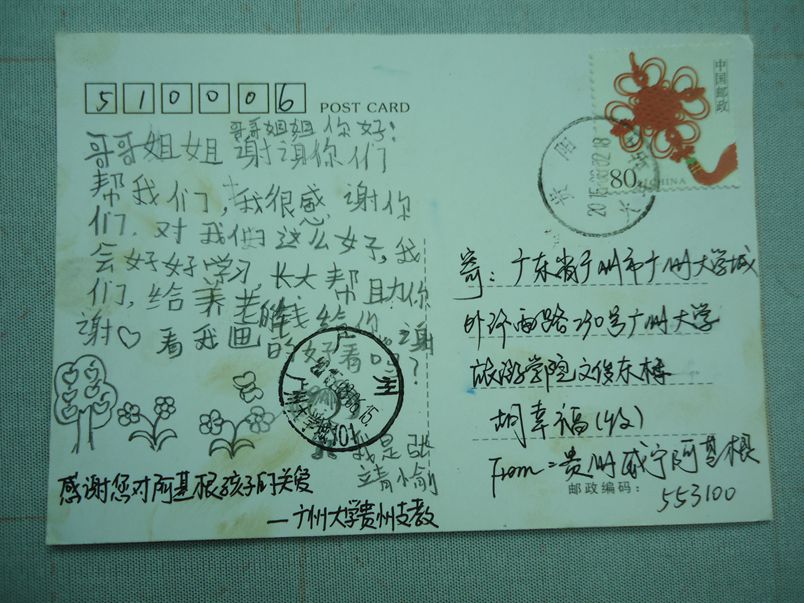 510006
POST CARD
中国邮政
80分
CHINA
哥哥姐姐你好!
哥哥姐姐 谢谢你们
帮我们,我很感谢你
们.对我们这么好,我
会好好学习,长大帮助你
们,给养老的钱给你
谢♡看我画的好看吗?
我是张
靖愉
感谢您对阿基根孩子的关爱
—广州大学贵州支教
寄:广东省广州市广州大学城
外环西路230号广州大学
旅游学院文俊东楼
胡幸福(收)
From:贵州威宁阿基根
邮政编码:
553100
贵阳
广州